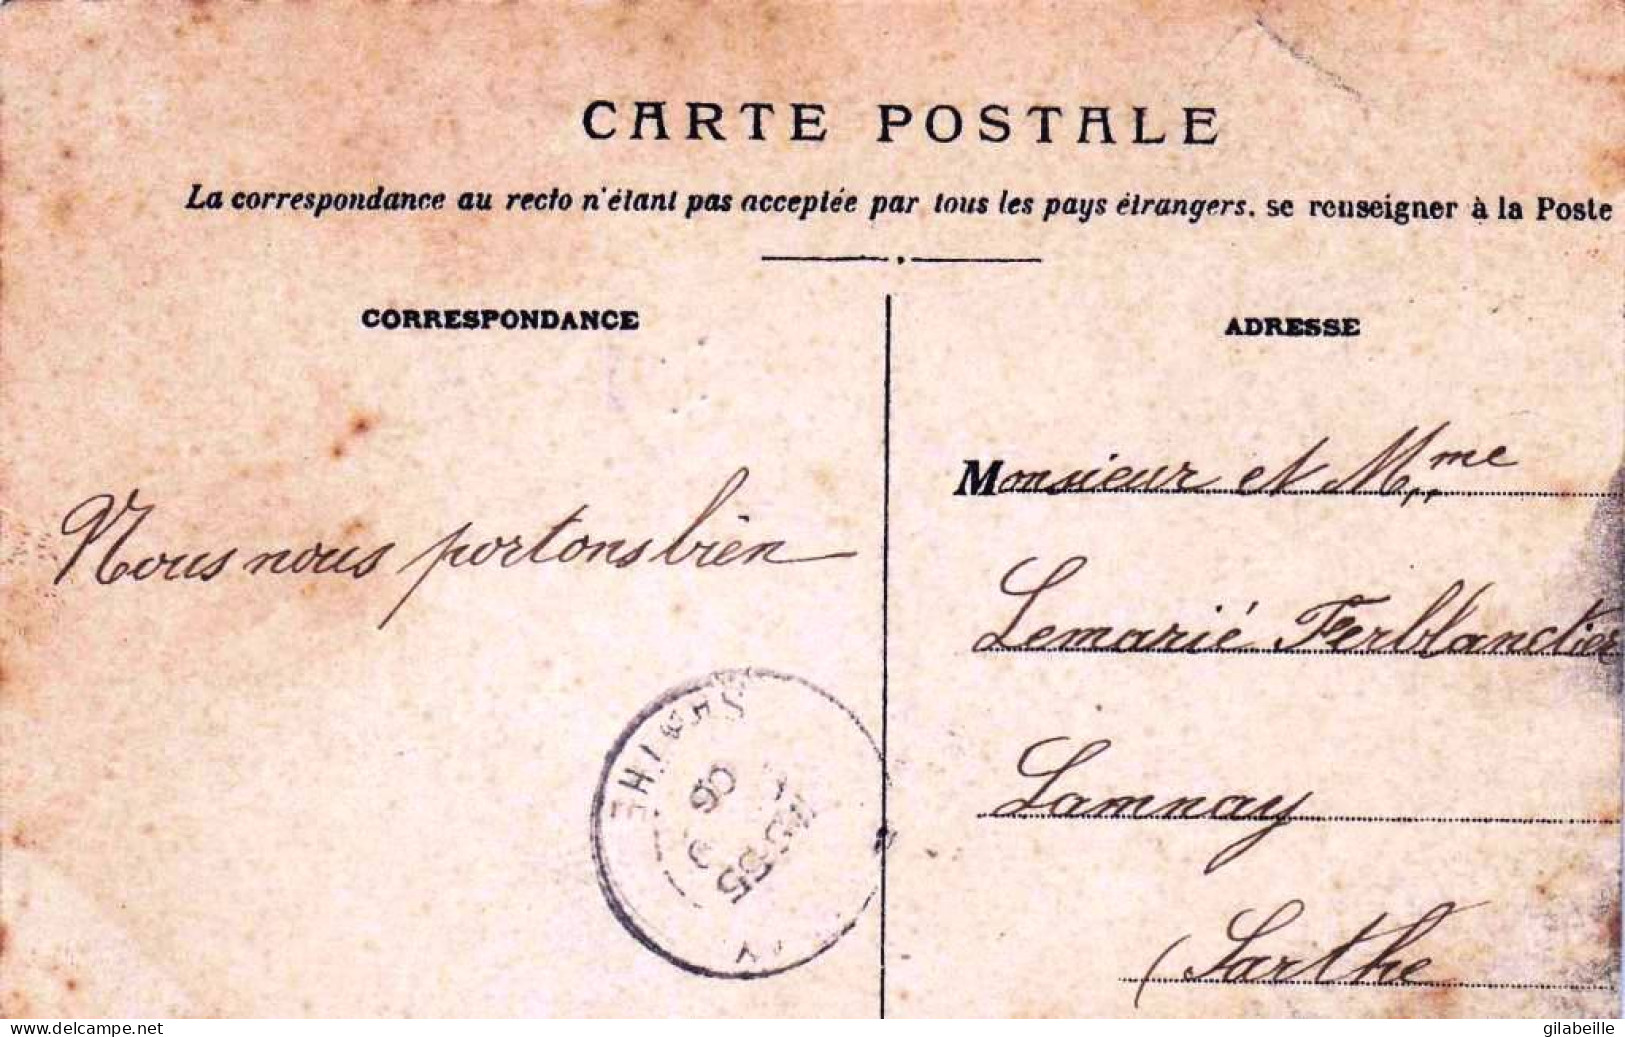 CARTE POSTALE
La correspondance au recto n'étant pas acceptée par tous les pays étrangers. se renseigner à la Poste
CORRESPONDANCE
ADRESSE
Nous nous portons bien
Monsieur et Mme
Lemarié Ferblanctier
Lamnay
(Sarthe
SARTHE
06
www.delcampe.net
gilabeille